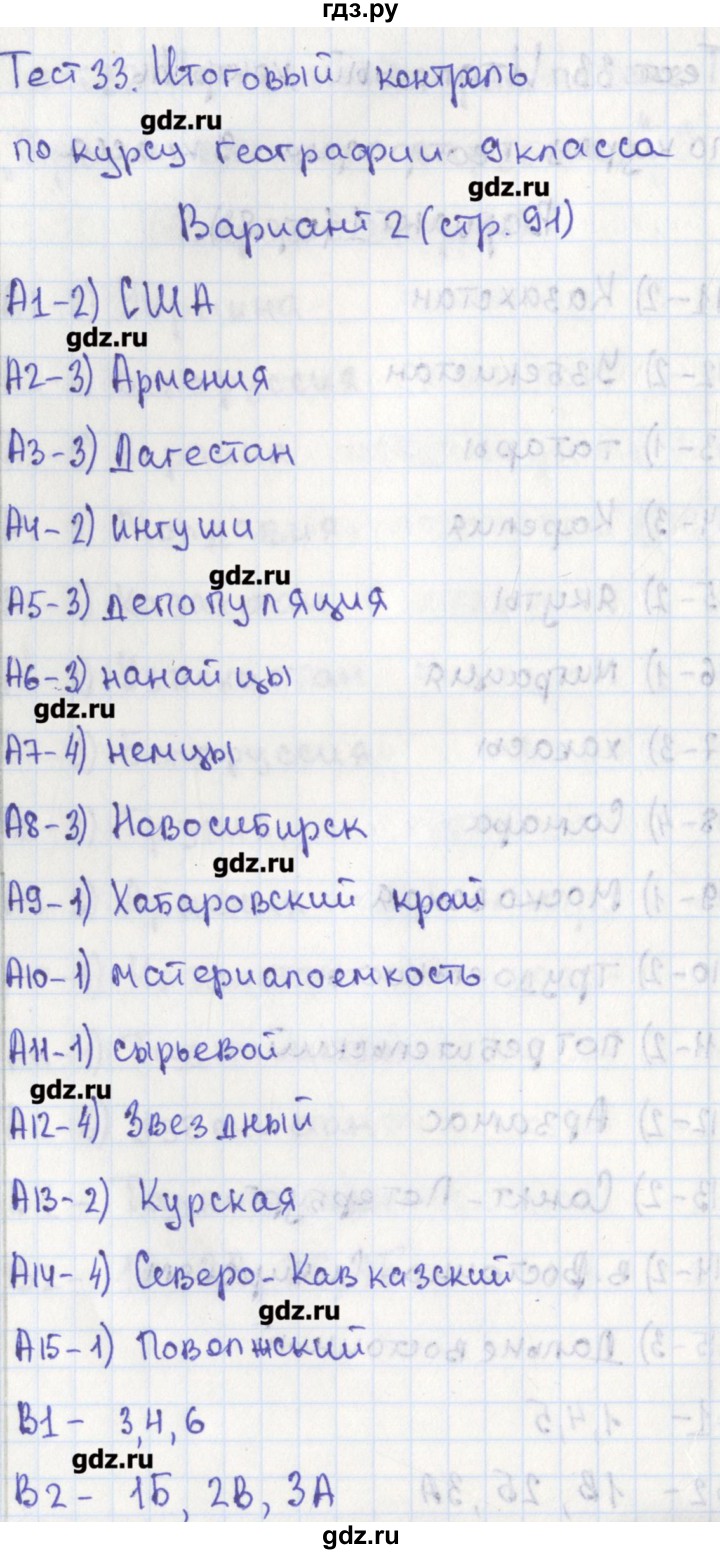 гдз.ру
Тест 33. Итоговый контроль
gdz.ru
по курсу географии 9 класса
gdz.ru
Вариант 2 (стр. 91)
А1-2) США
gdz.ru
А2-3) Армения
А3-3) Дагестан
А4-2) ингуши
gdz.ru
А5-3) депопуляция
А6-3) нанайцы
gdz.ru
А7-4) немцы
А8-3) Новосибирск
gdz.ru
А9-1) Хабаровский край
А10-1) материалоемкость
А11-1) сырьевой
gdz.ru
А12-4) Звездный
А13-2) Курская
А14-4) Северо-Кавказский
gdz.ru
А15-1) Поволжский
В1- 3,4,6
gdz.ru
В2- 1Б, 2В, 3А
gdz.ru